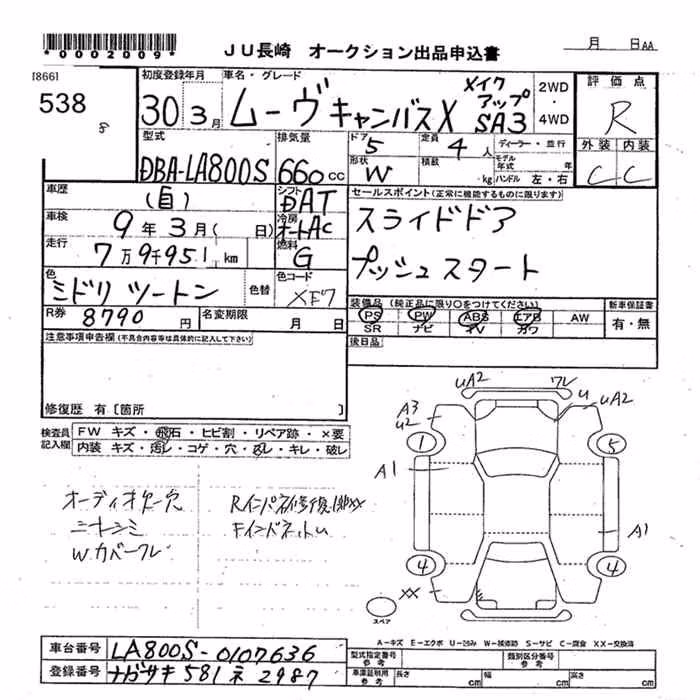 *0002009*
JU長崎 オークション出品申込書
月 日AA
18661
538
8
初度登録年月
30年3月
車名・グレード
ムーヴキャンバスX
メイクアップ
SA3
2WD
・
4WD
評価点
R
外装 内装
C C
型式
DBA-LA800S
排気量
660cc
ドア
5
定員
4人
ディーラー・並行
形状
W
積載
kg
モデル年式 年
ハンドル 左・右
車歴
(自)
シフト
DAT
車検
9年3月(日)
冷房
オートAC
走行
7万9千951km
燃料
G
色
ミドリツートン
色替
色コード
XF7
R券
8790円
名変期限
月 日
セールスポイント(正常に機能するものに限ります)
スライドドア
プッシュスタート
装備品(純正品に限り○をつけてください)
PS PW ABS エアB AW
SR ナビ TV カワ
新車保証書
有・無
後日品
注意事項申告欄(不具合内容等は具体的に記入して下さい)
修復歴 有〔箇所 〕
検査員記入欄
FW キズ・飛石・ヒビ割・リペア跡・×要
内装 キズ・汚レ・コゲ・穴・スレ・キレ・破レ
オーディオ欠穴
W.カバーワレ
uA2
ワレ
A3
u2
u
uA2
1
5
A1
A1
4
4
XX
スペア
A-キズ E-エクボ U-凹み W-補修跡 S-サビ C-腐食 XX-交換済
車台番号
LA800S-0107636
登録番号
ナガサキ581ネ2987
型式指定番号
参考
類別区分番号
参考
車庫証明用
参考
長さ cm
幅 cm
高さ cm